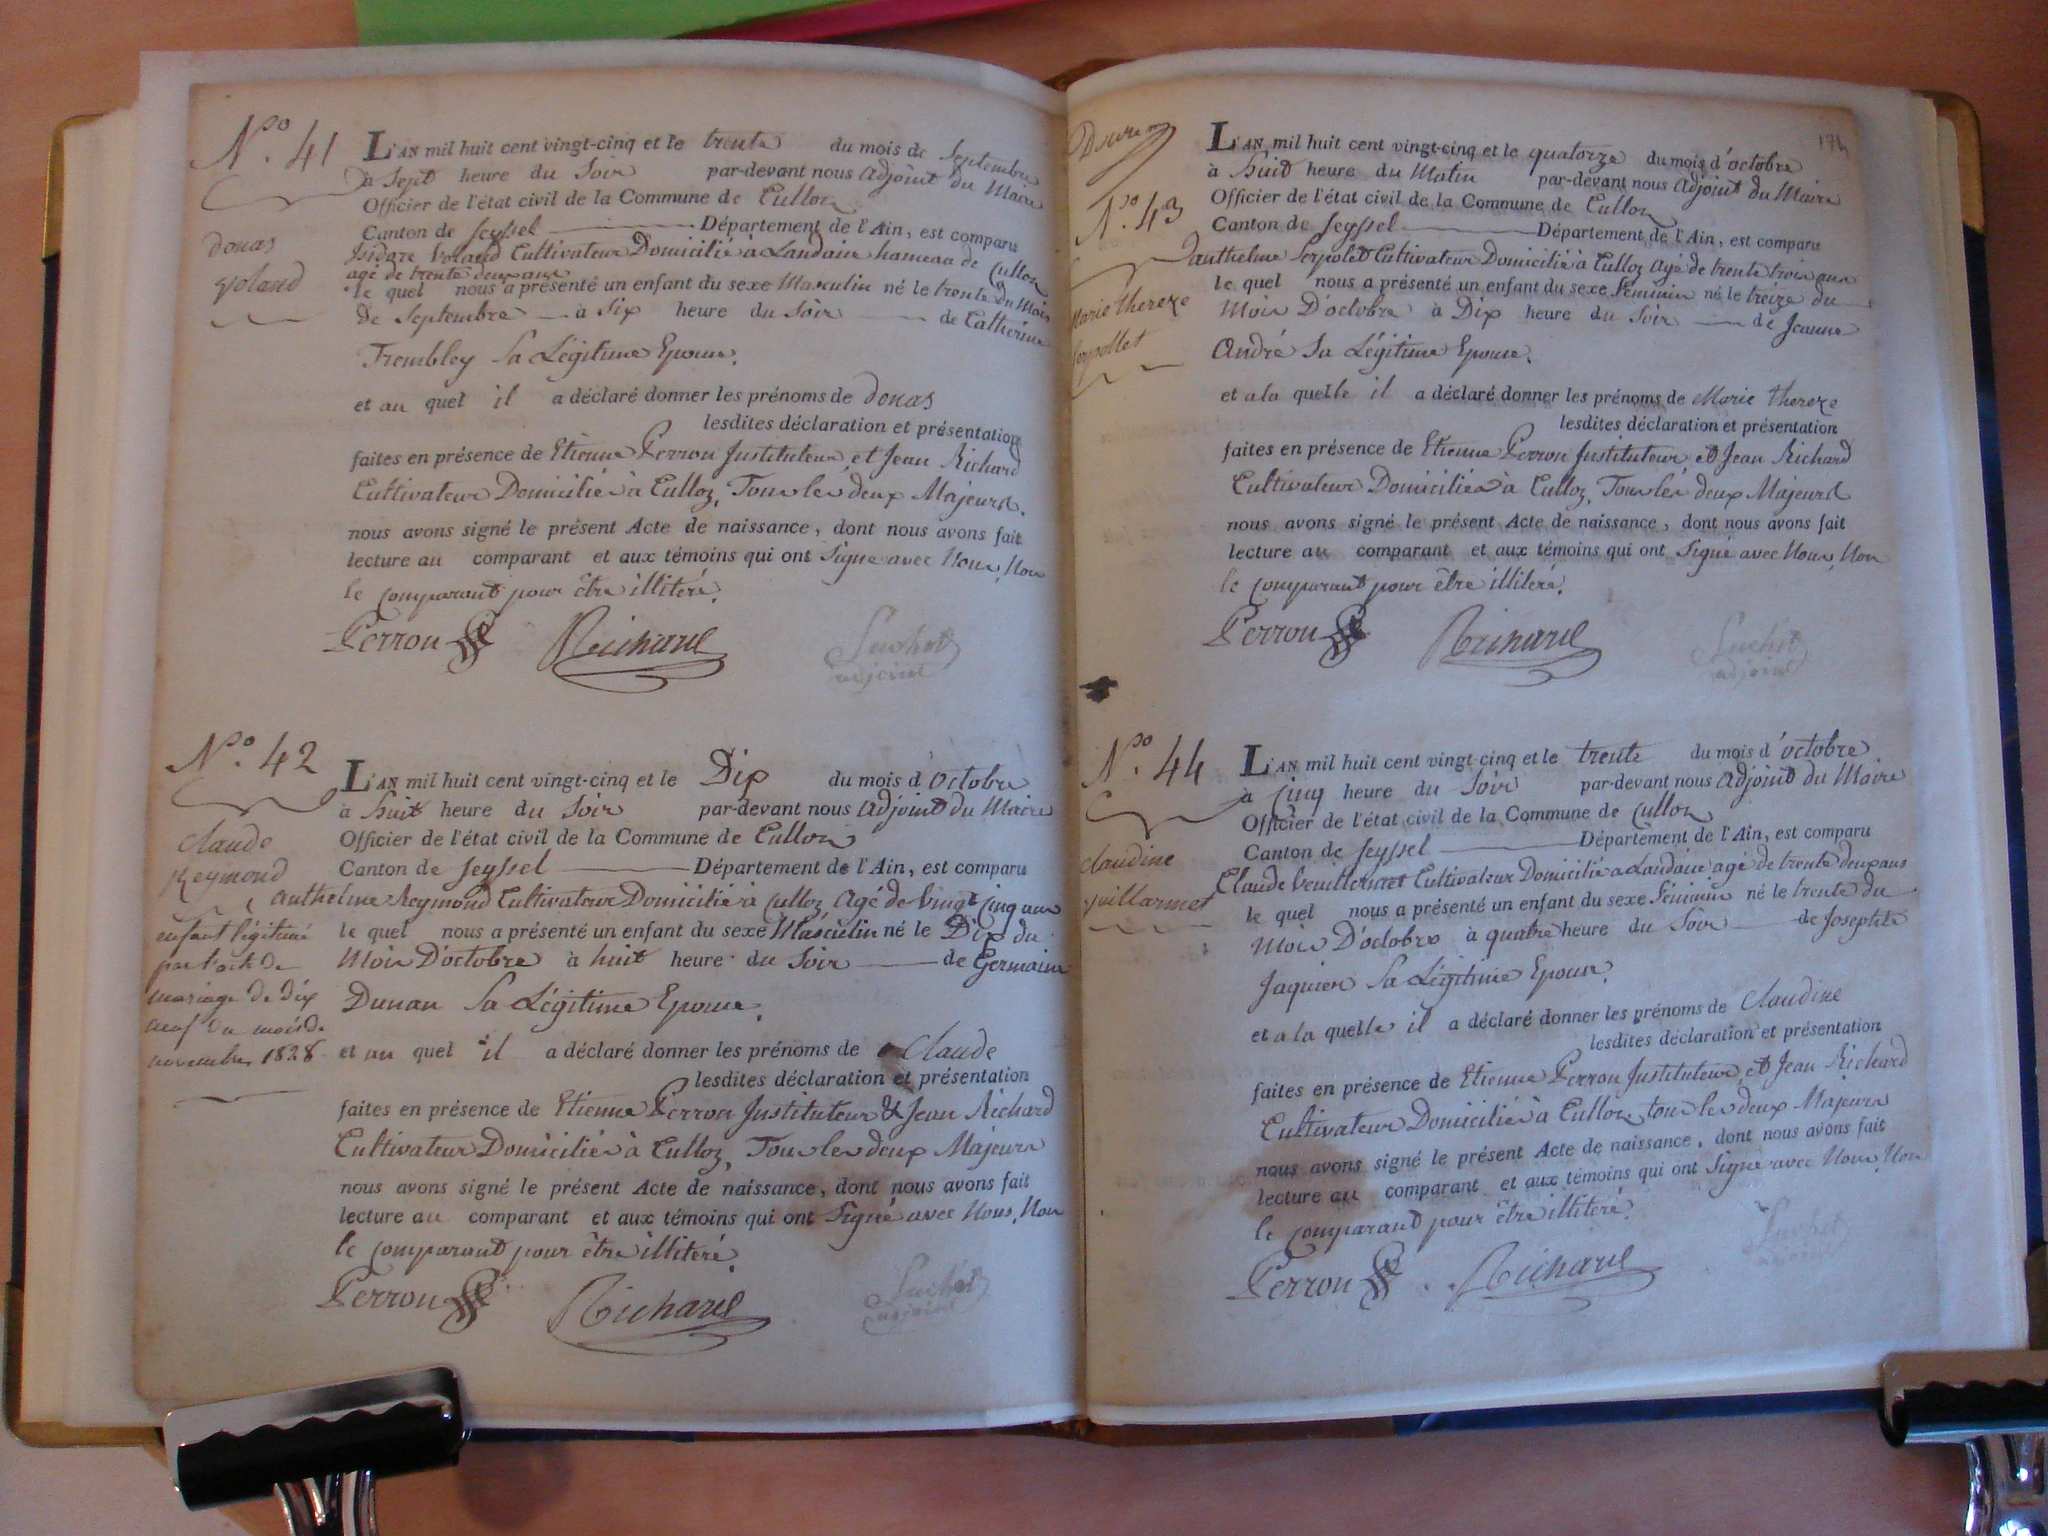 N.o 41
donas
Voland
L'AN mil huit cent vingt-cinq et le trente du mois de Septembre
à Sept heure du Soir par-devant nous Adjoint du Maire
Officier de l'état civil de la Commune de Culloz
Canton de Seyssel Département de l'Ain, est comparu
Isidore Voland Cultivateur Domicilié à Landaize hameau de Culloz
agé de trente deux ans
le quel nous a présenté un enfant du sexe Masculin né le trente du Mois
de Septembre à Six heure du Soir de Catherine
Trembley Sa Légitime Epouse.
et au quel il a déclaré donner les prénoms de donas
lesdites déclaration et présentation
faites en présence de Etienne Perron Instituteur et Jean Richard
Cultivateur Domiciliés à Culloz, Tous les deux Majeurs.
nous avons signé le présent Acte de naissance, dont nous avons fait
lecture au comparant et aux témoins qui ont Signé avec Nous, Non
le comparant pour être illiteré.
Perron Richard Suchet
adjoint
N.o 42
Claude
Reymond
enfant légitimé
par l'acte de
mariage de dix
neuf du mois de
novembre 1828
L'AN mil huit cent vingt-cinq et le Dix du mois d'octobre
à huit heure du Soir par-devant nous Adjoint du Maire
Officier de l'état civil de la Commune de Culloz
Canton de Seyssel Département de l'Ain, est comparu
Anthelme Reymond Cultivateur Domicilié à Culloz Agé de Vingt Cinq ans
le quel nous a présenté un enfant du sexe Masculin né le Dix du
Mois D'octobre à huit heure du Soir de Germaine
Dunan Sa Légitime Epouse.
et au quel il a déclaré donner les prénoms de Claude
lesdites déclaration et présentation
faites en présence de Etienne Perron Instituteur & Jean Richard
Cultivateur Domiciliés à Culloz, Tous les deux Majeurs
nous avons signé le présent Acte de naissance, dont nous avons fait
lecture au comparant et aux témoins qui ont Signé avec Nous, Non
le comparant pour être illiteré.
Perron Richard Suchet
adjoint
174
N.o 43
Marie thereze
Serpollet
L'AN mil huit cent vingt-cinq et le quatorze du mois d'octobre
à huit heure du Matin par-devant nous Adjoint du Maire
Officier de l'état civil de la Commune de Culloz
Canton de Seyssel Département de l'Ain, est comparu
anthelme Serpolet Cultivateur Domicilié à Culloz Agé de trente trois ans
le quel nous a présenté un enfant du sexe Feminin né le treize du
Mois D'octobre à Dix heure du Soir de Jeanne
André Sa Légitime Epouse.
et a la quelle il a déclaré donner les prénoms de Marie thereze
lesdites déclaration et présentation
faites en présence de Etienne Perron Instituteur et Jean Richard
Cultivateur Domiciliés à Culloz, Tous les deux Majeurs
nous avons signé le présent Acte de naissance, dont nous avons fait
lecture au comparant et aux témoins qui ont Signé avec Nous, Non
le comparant pour être illiteré.
Perron Richard Suchet
adjoint
N.o 44
Claudine
L'AN mil huit cent vingt-cinq et le trente du mois d'octobre
à Cinq heure du Soir par-devant nous Adjoint du Maire
Officier de l'état civil de la Commune de Culloz
Canton de Seyssel Département de l'Ain, est comparu
Claude Cultivateur Domicilié a Landaize agé de trente deux ans
le quel nous a présenté un enfant du sexe Féminin né le trente du
Mois D'octobre à quatre heure du Soir de Josephte
Jaquier Sa Légitime Epouse.
et a la quelle il a déclaré donner les prénoms de Claudine
lesdites déclaration et présentation
faites en présence de Etienne Perron Instituteur et Jean Richard
Cultivateur Domiciliés à Culloz tous les deux Majeurs
nous avons signé le présent Acte de naissance, dont nous avons fait
lecture au comparant et aux témoins qui ont Signé avec Nous, Non
le comparant pour être illiteré.
Perron Richard Suchet
adjoint